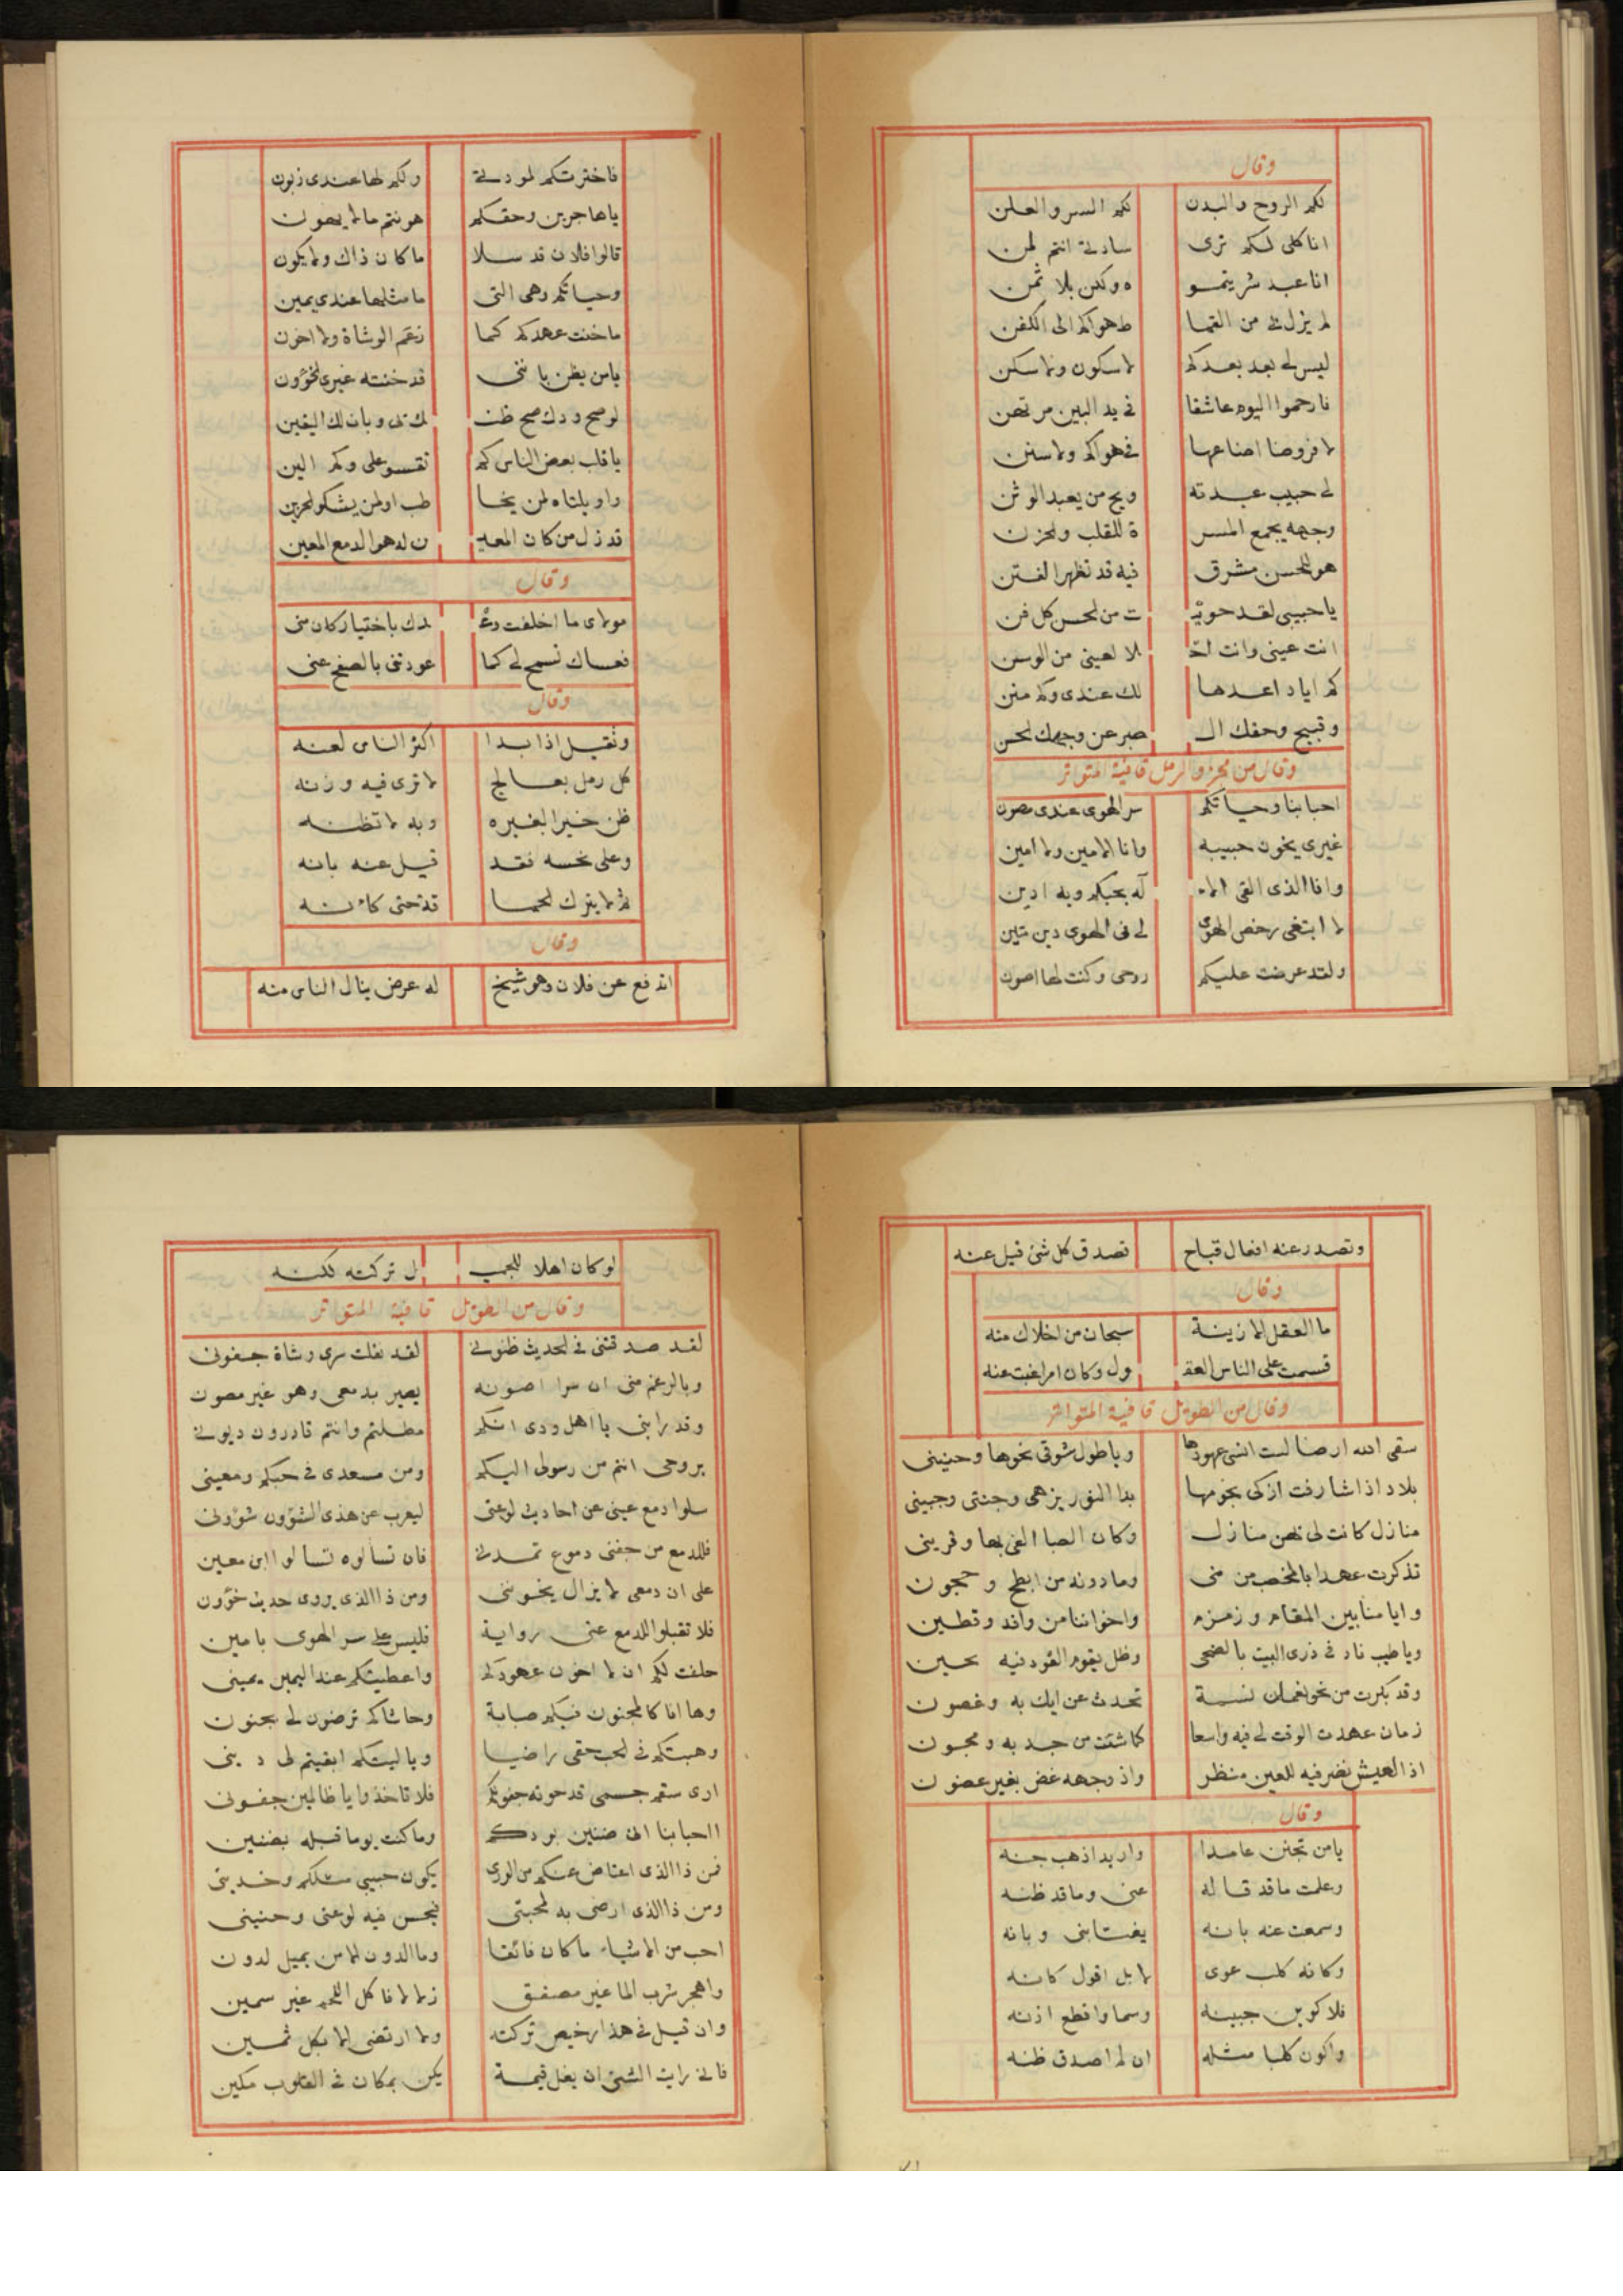 وقال
لكم الروح والبدن لكم السر والعلن
انا كلى لكم ترى سادتى انتم لمن
انا عبد شريتمو ه ولكن بلا ثمن
لم يزل بى من القما ط هواكم الى الكفن
ليس لى بعد بعدكم لا سكون ولا سكن
فارحموا اليوم عاشقا فى يد البين مرتهن
لا فروضا اضاعها فى هواكم ولا سنن
لى حبيب عبدته ويح من يعبد الوثن
وجهه يجمع المسر ة للقلب والحزن
هو للحسن مشرق فيه قد تظهر الفتن
يا حبيبى لقد حويـ ت من الحسن كل فن
انت عينى وانت احـ لا لعينى من الوسن
كم اياد اعدها لك عندى وكم منن
وقبيح وحقك الـ صبر عن وجهك الحسن
وقال من مجزو الرمل قافية المتواتر
احبابنا وحياتكم سر الهوى عندى مصون
غيرى يخون حبيبه وانا الامين ولا امين
وانا الذى القى الاله بحبكم وبه ادين
لا ابتغى رخص الهوى لى فى الهوى دين متين
ولقد عرضت عليكم روحى وكنت لها اصون
فاخترتكم لمودتى ولكم لها عندى زبون
يا هاجرين وحقكم هونتم ما لا يهون
قالوا فلان قد سلا ما كان ذاك ولا يكون
وحياتكم وهى التى ما مثلها عندى يمين
ما خنت عهدكم كما زعم الوشاة ولا اخون
يا من يظن باننى قد خنته غيرى الخؤون
لو صح ودك صح ظنـ ك بى وبان لك اليقين
يا قلب بعض الناس كم تقسو على وكم الين
واويلتاه لمن يخا طب او لمن يشكو الحزين
قد ذل من كان المعيـ ن له هو الدمع المعين
وقال
مولاى ما اخلفت وعـ دك باختيار كان منى
فعساك تسمح لى كما عودتنى بالصفح عنى
وقال
وثقيل اذا بدا اكثر الناس لعنه
كل رمل بعالج لا ترى فيه وزنه
ظن خيرا بغيره وبه لا تظنه
وعلى نحسه فقد قيل عنه بانه
وقال
اندفع عن فلان وهو شيخ له عرض ينال الناس منه
وتصدر عنه افعال قباح تصدق كل شئ قيل عنه
وقال
ما العقل الا زينة سبحان من اخلاك منه
قسمت على الناس العقـ ول وكان امرا غبت عنه
وقال من الطويل قافية المتواتر
سقى الله ارضا لست انسى عهودها ويا طول شوقى نحوها وحنينى
بلاد اذا شارفت ازكى نجومها بدا النور يزهى وجنتى وجبينى
منازل كانت لى بهن منازل وكان الصبا الفى بها وقرينى
تذكرت عهدا بالمحصب من منى وما دونه من ابطح وحجون
وايامنا بين المقام وزمزم واخواننا من وافد وقطين
ويا طيب ناد فى ذرى البيت بالضحى وظل يقوم العود فيه بحين
وقد بكرت من نحو نعمان نسمة تحدث عن ايك به وغصون
زمان عهدت الوقت لى فيه واسعا كما شئت من جد به ومجون
اذ العيش نضر فيه للعين منظر واذ وجهه غض بغير غضون
وقال
يا من تجنن عامدا واريد اذهب جنه
وعلمت ما قد قاله عنى وما قد ظنه
وسمعت عنه بانه يغتابنى وبانه
وكانه كلب عوى لا بل اقول كانه
فلاكوين جبينه وسما واقطع اذنه
واكون كلبا مثله ان لم اصدق ظنه
لو كان اهلا للجميـ ل تركته لكنه
وقال من الطويل قافية المتواتر
لقد صدقتنى فى الحديث ظنونى لقد نقلت سرى وشاة جفونى
وبالرغم منى ان سرا اصونه يصير بدمعى وهو غير مصون
وقد رابنى يا اهل ودى انكم مطلتم وانتم قادرون ديونى
بروحى انتم من رسولى اليكم ومن مسعدى فى حبكم ومعينى
سلوا دمع عينى عن احاديث لوعتى ليعرب عن هذى الشؤون شؤونى
فللدمع من جفنى دموع تمدنى فان تسالوه تسالوا ابن معين
على ان دمعى لا يزال يخوننى ومن ذا الذى يروى حديث خؤون
فلا تقبلوا للدمع عنى رواية فليس على سر الهوى بامين
حلفت لكم ان لا اخون عهودكم واعطيتكم عند اليمين يمينى
وها انا كالمجنون فيكم صبابة وحاشاكم ترضون لى بجنون
وهبتكم فى الحب حقى راضيا ويا ليتكم ابقيتم لى دينى
ارى سقم جسمى قد حوته جفونكم فلا تاخذوا يا ظالمين جفونى
ااحبابنا انى ضنين بودكم وما كنت يوما قبله بضنين
فمن ذا الذى اعتاض عنكم من الورى يكون حبيبى مثلكم وخدينى
ومن ذا الذى ارضى به لمحبتى فيحسن فيه لوعتى وحنينى
احب من الاشياء ما كان فائقا وما الدون الا من يميل لدون
واهجر شرب الما غير مصفق زلالا فا كل اللحم غير سمين
وان قيل فى هذا رخيص تركته ولا ارتضى الا بكل ثمين
فانى رايت الشئ ان يغل قيمة يكن بمكان فى القلوب مكين